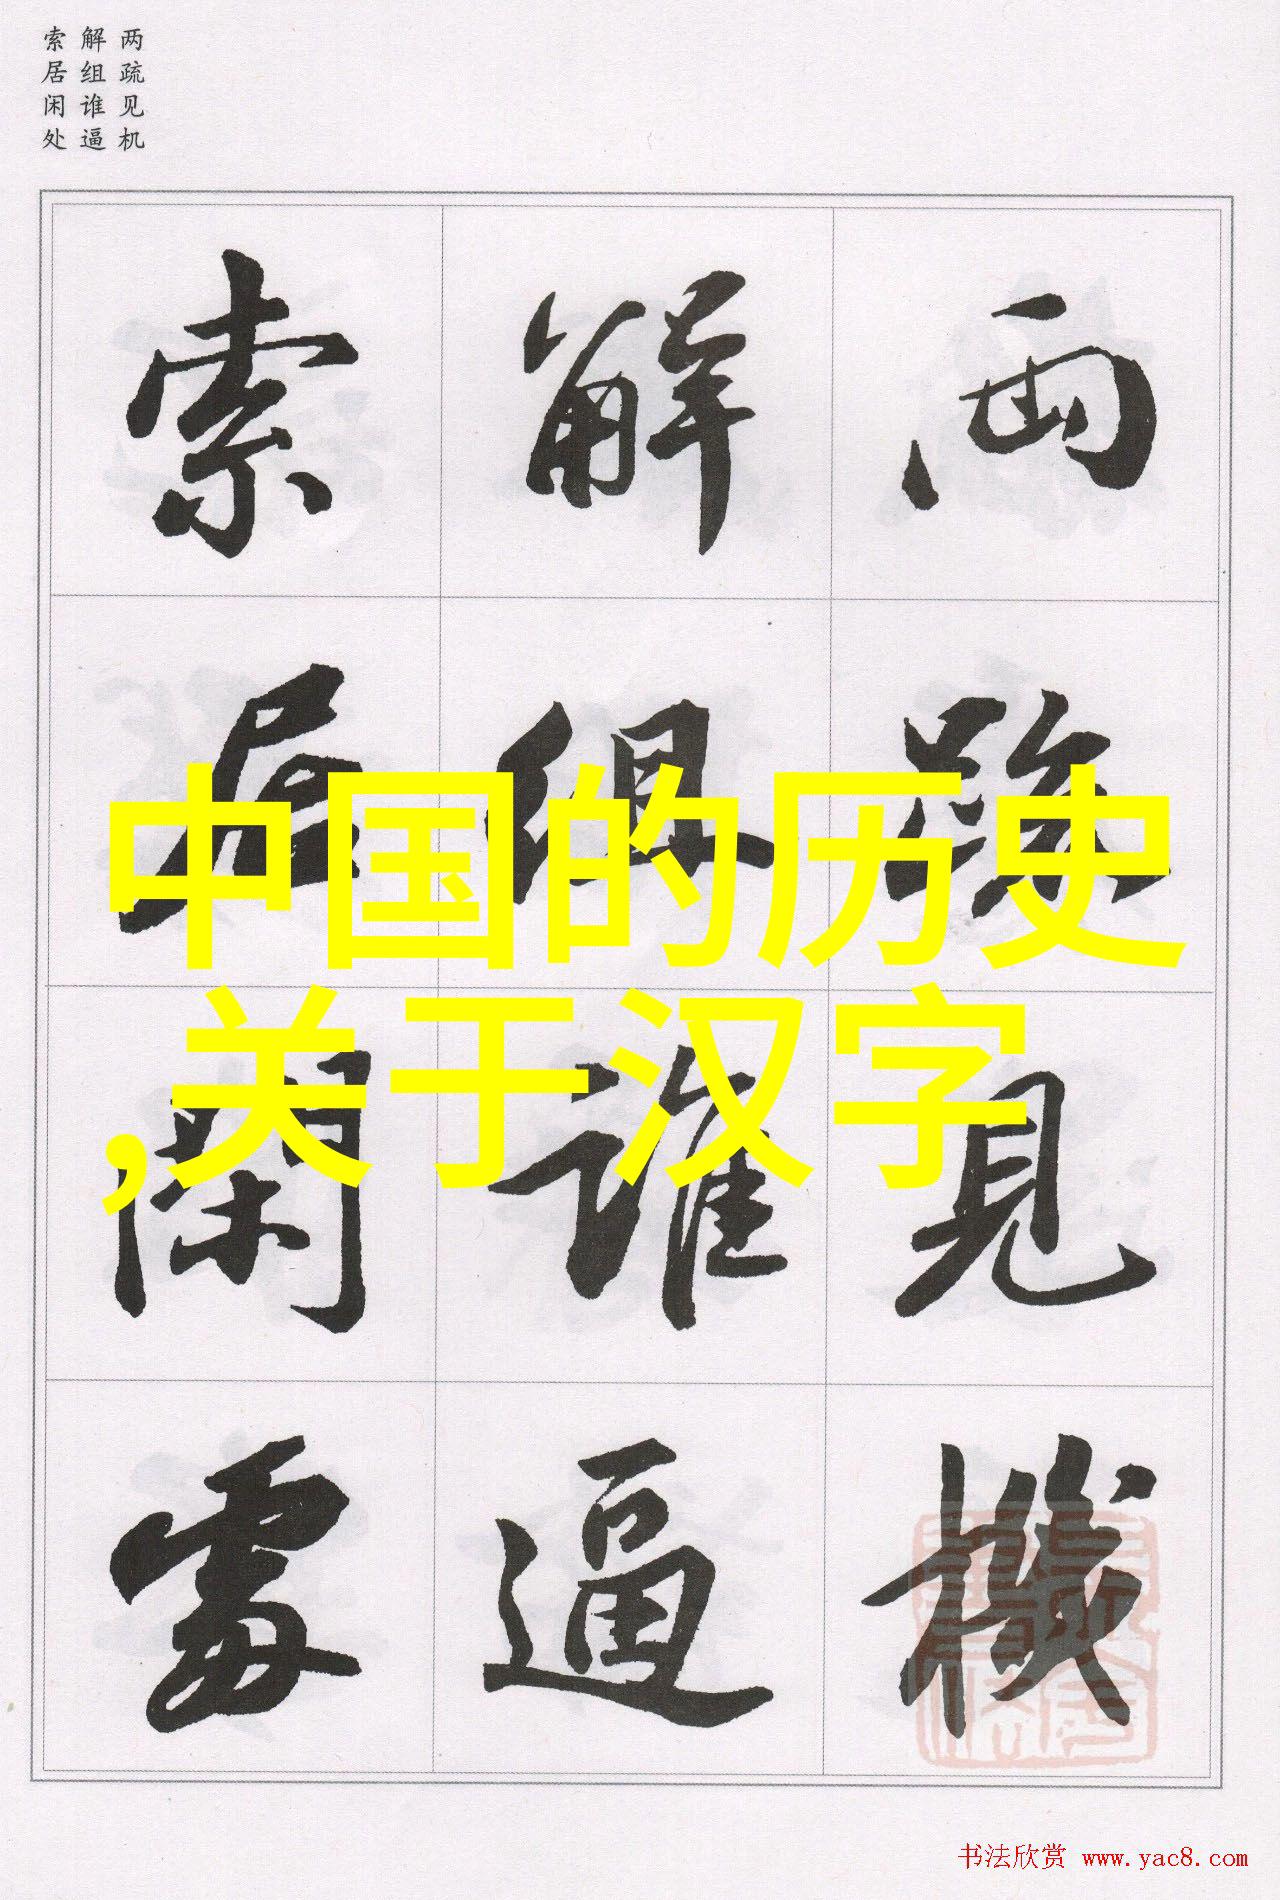 两疏见机
解组谁逼
索居闲处
兩疏見機
解組誰逼
索居閑處
中国的历史
,关于汉字
书法欣赏 www.yac8.com